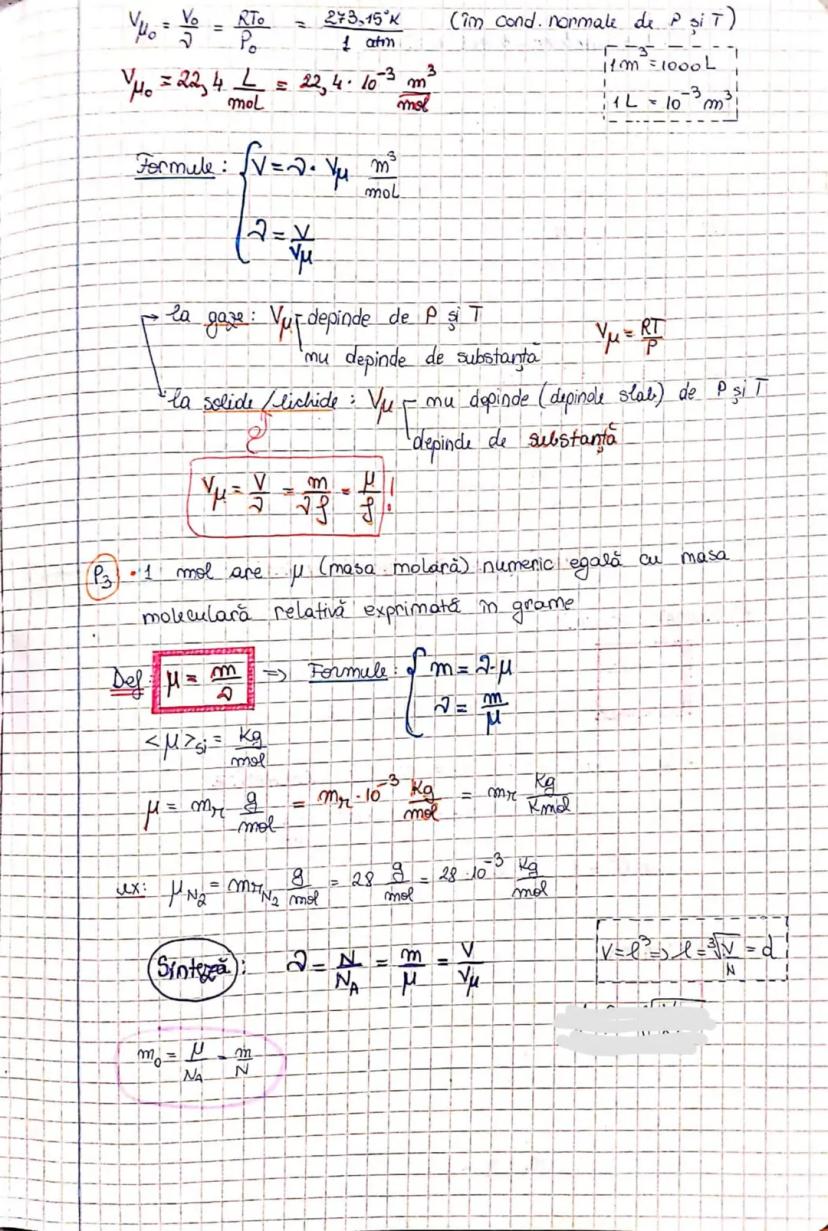 Vμ₀ = V₀/ν = RT₀/P₀ = 273,15°K / 1 atm (în cond. normale de P și T)
Vμ₀ = 22,4 L/moL = 22,4 · 10⁻³ m³/mol
1 m³ = 1000 L
1 L = 10⁻³ m³
Formule: { V = ν · Vμ m³/moL
ν = V/Vμ
la gaze: Vμ depinde de P și T
nu depinde de substanță
Vμ = RT/P
la solide/lichide: Vμ nu depinde (depinde slab) de P și T
depinde de substanță
Vμ = V/ν = m/νρ = μ/ρ !
P3 • 1 mol are μ (masa molară) numeric egală cu masa
moleculară relativă exprimată în grame
Def: μ = m/ν => Formule: { m = ν·μ
ν = m/μ
<μ>si = Kg/mol
μ = mr g/mol = mr · 10⁻³ Kg/mol = mr Kg/Kmol
ex: μN₂ = mrN₂ g/mol = 28 g/mol = 28 · 10⁻³ Kg/mol
Sinteză: ν = N/NA = m/μ = V/Vμ
V = l³ => l = ³√V/N = d
m₀ = μ/NA = m/N